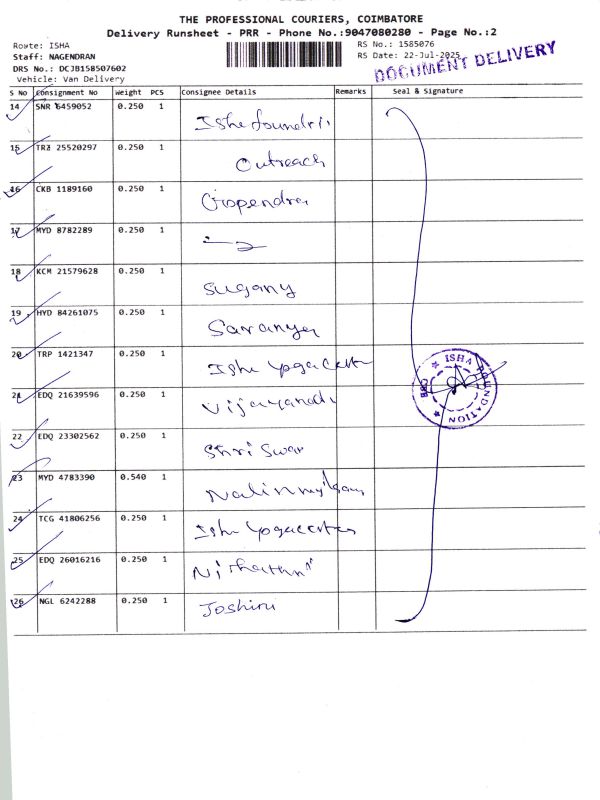 THE PROFESSIONAL COURIERS, COIMBATORE
Delivery Runsheet - PRR - Phone No.:9047080280 - Page No.:2
Route: ISHA
Staff: NAGENDRAN
DRS No.: DCJB158507602
Vehicle: Van Delivery
RS No.: 1585076
RS Date: 22-Jul-2025
DOCUMENT DELIVERY
S No Consignment No Weight PCS Consignee Details Remarks Seal & Signature
14 SNR 6459052 0.250 1 Isha foundri
15 TRZ 25520297 0.250 1 Outreach
16 CKB 1189160 0.250 1 Gopendra
17 MYD 8782289 0.250 1
18 KCM 21579628 0.250 1 Sugany
19 HYD 84261075 0.250 1 Saranya
20 TRP 1421347 0.250 1 Isha Yoga
21 EDQ 21639596 0.250 1
22 EDQ 23302562 0.250 1 Shri Swar
23 MYD 4783390 0.540 1
24 TCG 41806256 0.250 1 Isha
25 EDQ 26016216 0.250 1
26 NGL 6242288 0.250 1 Joshiru
ISHA FOUNDATION